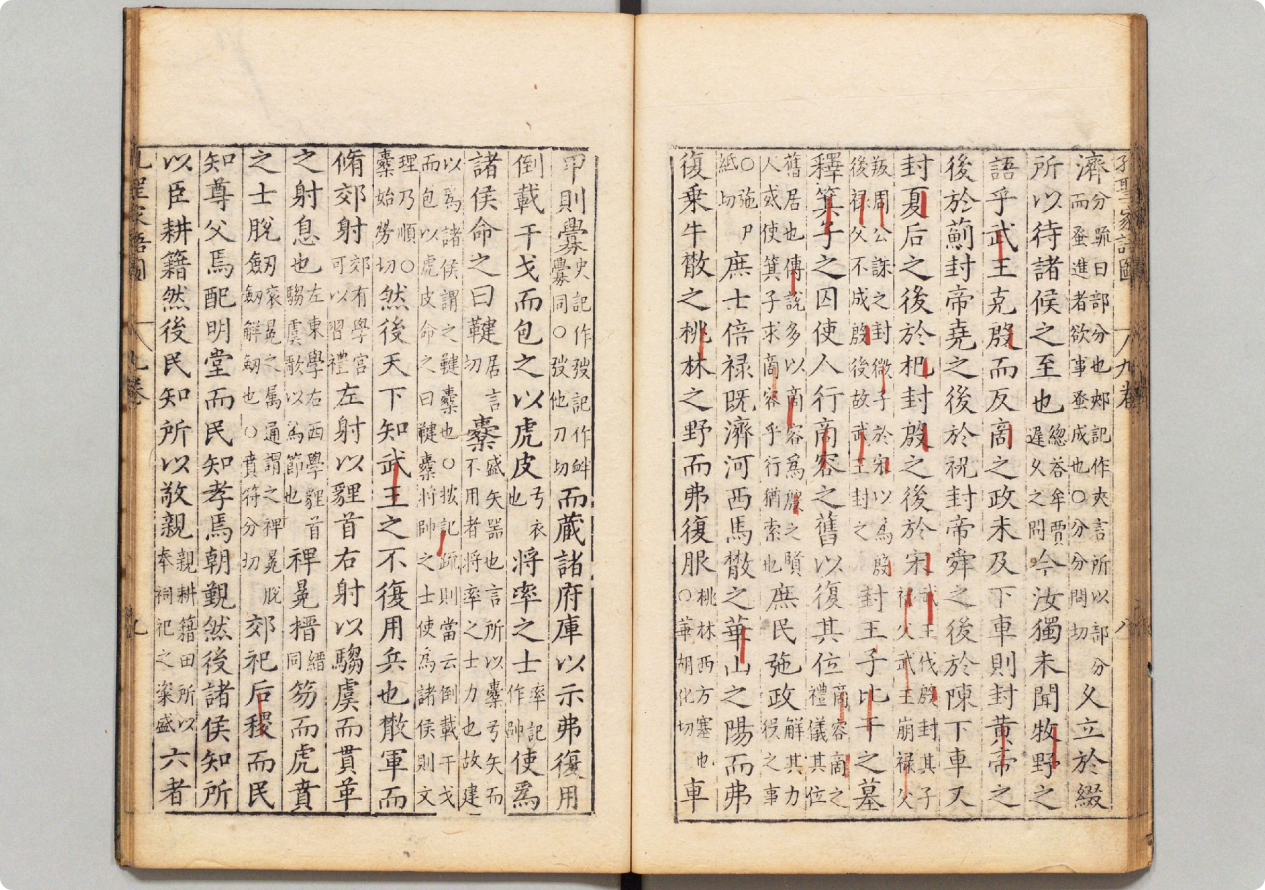 孔聖家語圖 八九卷 八
濟分郹曰部分也郟記作夾言所以部分而蚤進者欲事蚤成也○分分問切久立於綴
所以待諸侯之至也總荅牟賈遲久之問今汝獨未聞牧野之
語乎武王克殷而反商之政未及下車則封黃帝之
後於薊封帝堯之後於祝封帝舜之後於陳下車又
封夏后之後於杞封殷之後於宋武王伐殷封其子祿父武王崩祿父
叛周公誅之封微子於宋以為殷後祿父不成殷後故武王封之封王子比干之墓
釋箕子之囚使人行商容之舊以復其位商容商之禮儀其位
舊居也傳說多以商容為殷之賢人或使箕子求商容乎行猶索也庶民弛政解其力役之事
○弛尸紙切庶士倍祿既濟河西馬散之華山之陽而弗
復乘牛散之桃林之野而弗復服桃林西方塞也○華胡化切車
甲則釁史記作弢記作衅釁同○弢他刀切而藏諸府庫以示弗復用
倒載干戈而包之以虎皮弓衣也將率之士率記作帥使為
諸侯命之曰鞬居言切櫜盛矢器也言所以櫜弓矢而不用者將率之士力也故建
以為諸侯謂之鞬櫜也○按記疏則當云倒載干戈而包以虎皮命之曰鞬櫜將帥之士使為諸侯則文
理乃順○櫜始勞切然後天下知武王之不復用兵也散軍而
脩郊射郊有學宮可以習禮左射以貍首右射以騶虞而貫革
之射息也左東學右西學貍首騶虞歌以為節也裨冕搢縉同笏而虎賁
之士脫劒袞冕之屬通謂之裨冕脫劒解劒也○賁符分切郊祀后稷而民
知尊父焉配明堂而民知孝焉朝覲然後諸侯知所
以臣耕籍然後民知所以敬親親耕籍田所以奉祠祀之粢盛六者
孔聖家語圖 八九卷 九